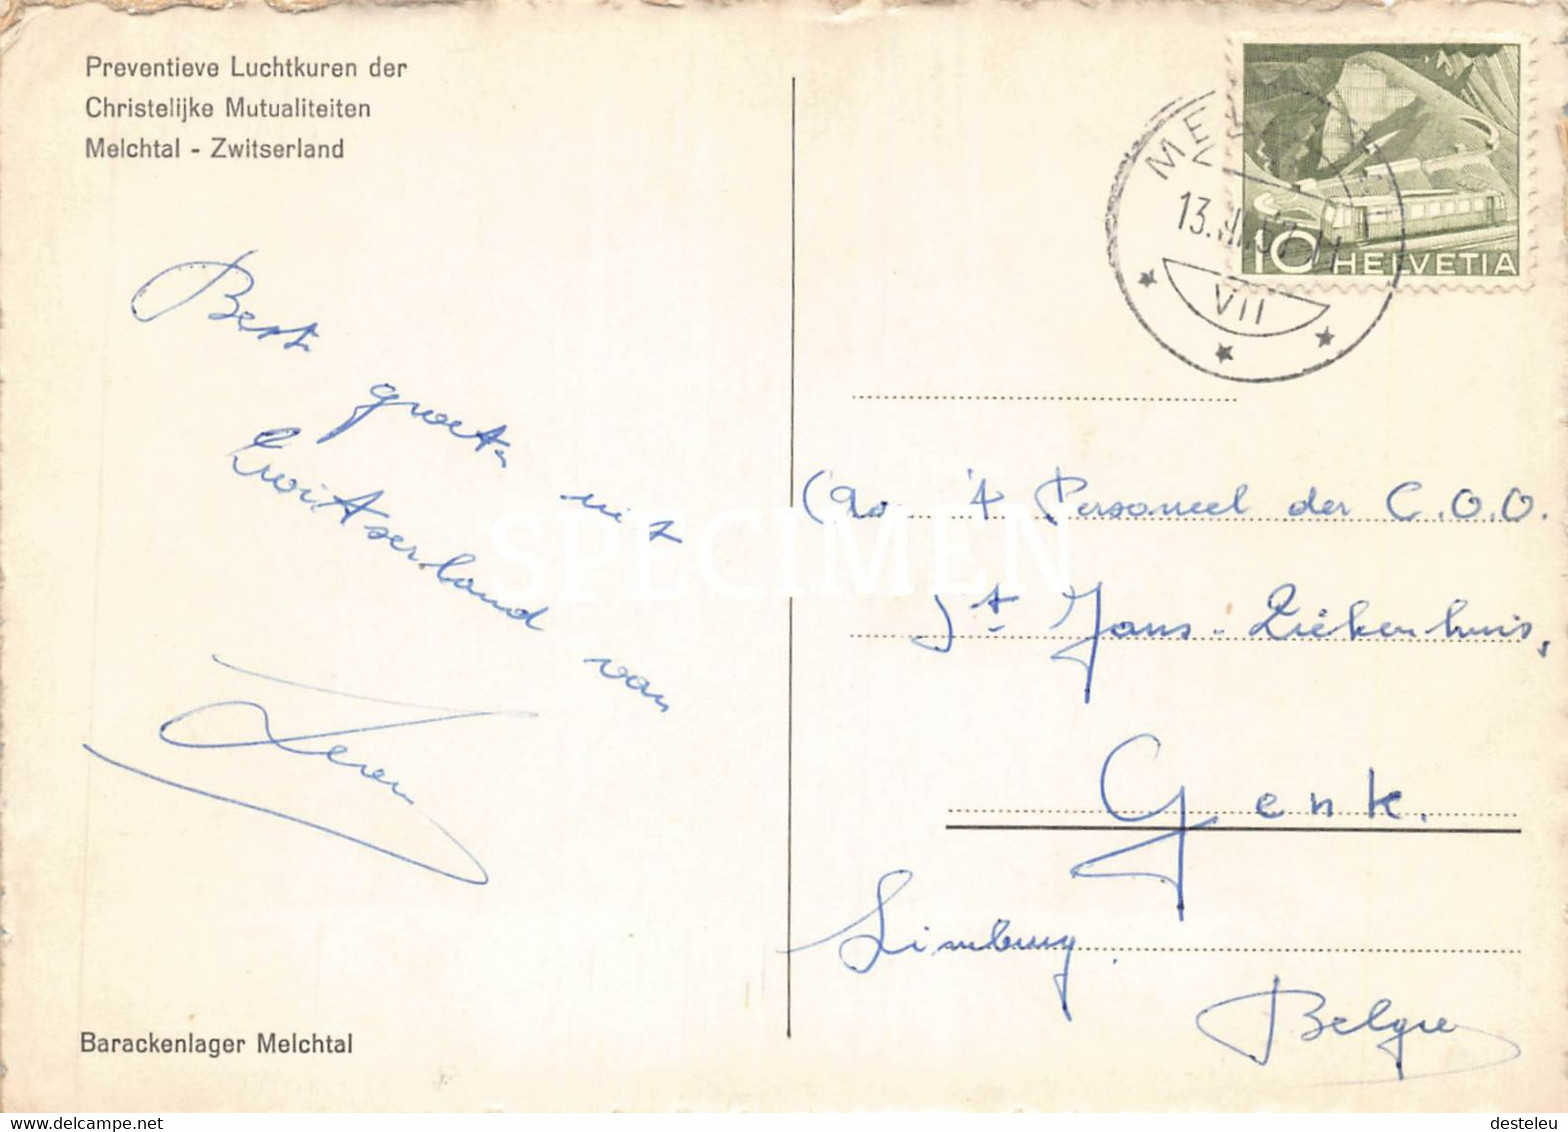 Preventieve Luchtkuren der
Christelijke Mutualiteiten
Melchtal - Zwitserland
10 HELVETIA
13.
VII
Best
groeten uit
Zwitserland
van
't Personeel der C.O.O.
St Jans-Ziekenhuis,
Genk.
Limburg.
Belgie
SPECIMEN
Barackenlager Melchtal
www.delcampe.net
desteleu